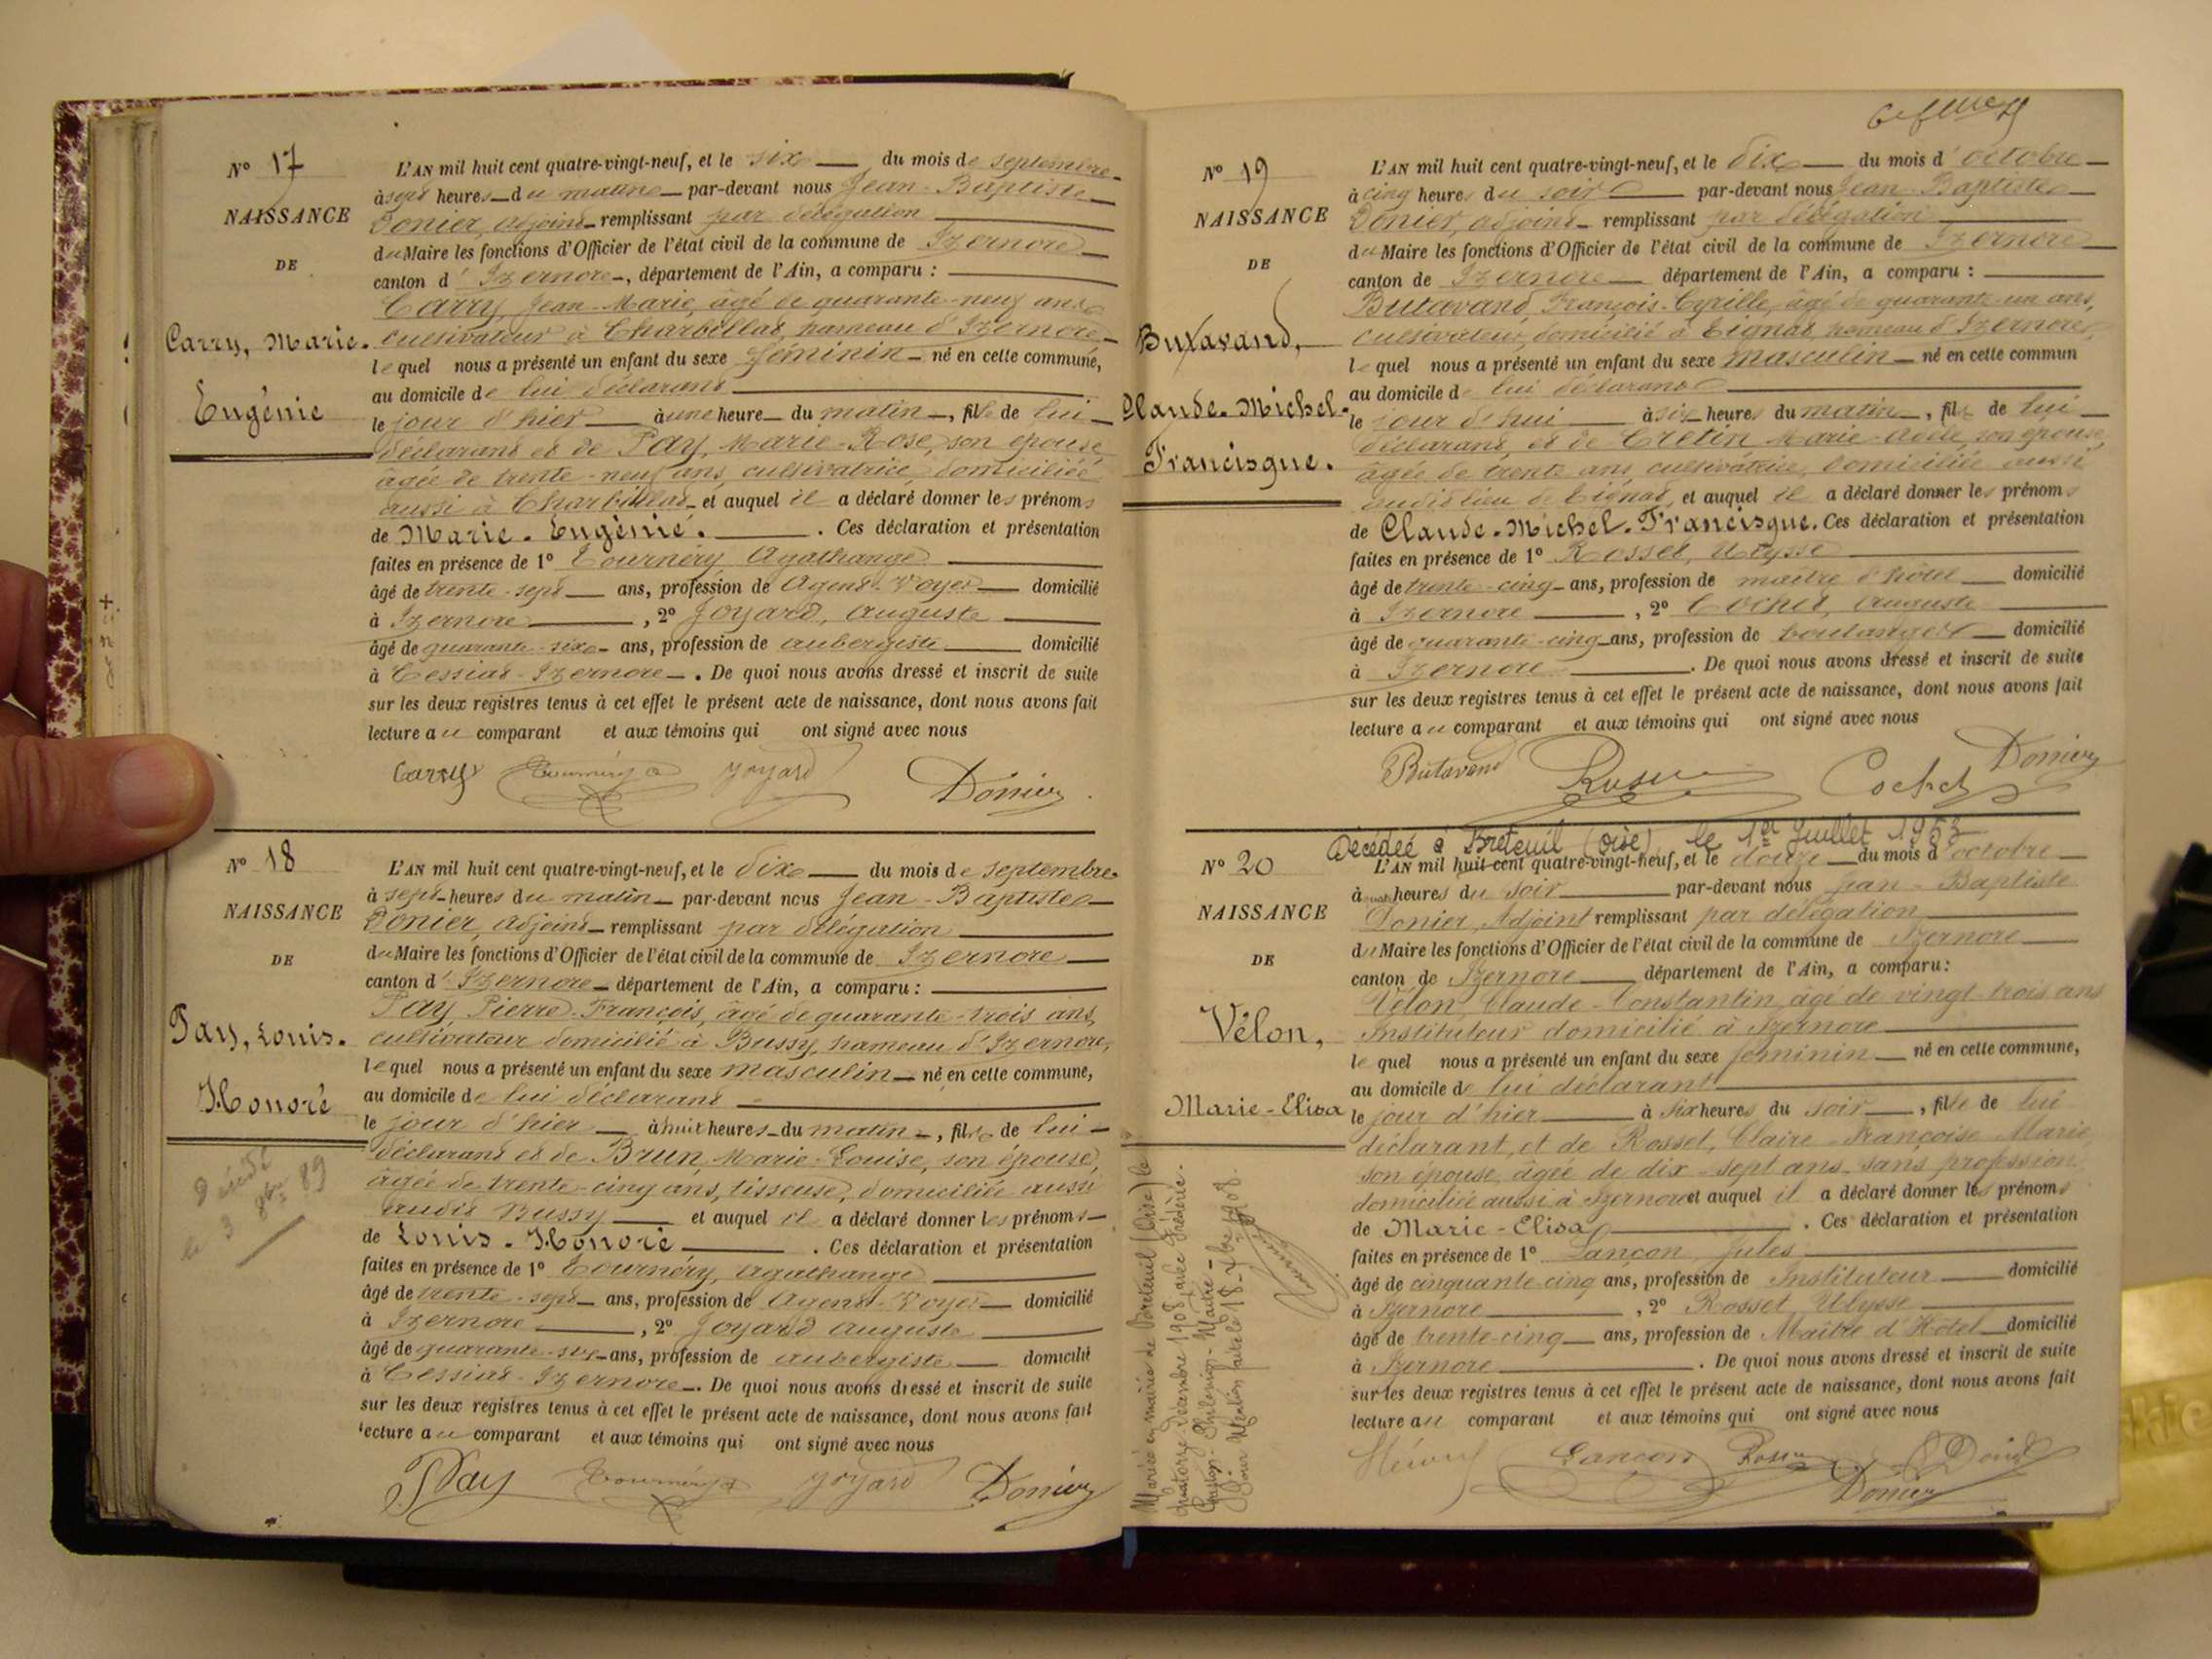 Nº 17
NAISSANCE
DE
Carry, Marie-
Eugénie
L'AN mil huit cent quatre-vingt-neuf, et le six du mois de septembre
à sept heures du matin par-devant nous Jean-Baptiste
Donier, adjoint remplissant par délégation
du Maire les fonctions d'Officier de l'état civil de la commune de Izernore
canton d'Izernore, département de l'Ain, a comparu :
Carry, Jean-Marie, âgé de quarante-neuf ans
cultivateur à Charbillat, hameau d'Izernore
lequel nous a présenté un enfant du sexe féminin né en cette commune,
au domicile de lui déclarant
le jour d'hier à une heure du matin, fille de lui
déclarant et de Pay, Marie-Rose, son épouse
âgée de trente-neuf ans, cultivatrice, domiciliée
aussi à Charbillat et auquel il a déclaré donner les prénoms
de Marie-Eugénie. Ces déclaration et présentation
faites en présence de 1º Tournery Agathange
âgé de trente-sept ans, profession de Agent-Voyer domicilié
à Izernore, 2º Joyard, Auguste
âgé de quarante-six ans, profession de aubergiste domicilié
à Cessiat-Izernore. De quoi nous avons dressé et inscrit de suite
sur les deux registres tenus à cet effet le présent acte de naissance, dont nous avons fait
lecture au comparant et aux témoins qui ont signé avec nous
Carry Tournery a Joyard Donier
Nº 18
NAISSANCE
DE
Pay, Louis-
Honoré
Décédé
le 3 8bre 89
L'AN mil huit cent quatre-vingt-neuf, et le dix du mois de septembre
à sept heures du matin par-devant nous Jean-Baptiste
Donier, adjoint remplissant par délégation
du Maire les fonctions d'Officier de l'état civil de la commune de Izernore
canton d'Izernore département de l'Ain, a comparu :
Pay Pierre-François, âgé de quarante-trois ans,
cultivateur domicilié à Bussy, hameau d'Izernore,
lequel nous a présenté un enfant du sexe masculin né en cette commune,
au domicile de lui déclarant
le jour d'hier à huit heures du matin, fils de lui
déclarant et de Brun, Marie-Louise, son épouse,
âgée de trente-cinq ans, tisseuse, domiciliée aussi
audit Bussy et auquel il a déclaré donner les prénoms
de Louis-Honoré. Ces déclaration et présentation
faites en présence de 1º Tournery, Agathange
âgé de trente-sept ans, profession de Agent-Voyer domicilié
à Izernore, 2º Joyard Auguste
âgé de quarante-six ans, profession de aubergiste domicilié
à Cessiat-Izernore. De quoi nous avons dressé et inscrit de suite
sur les deux registres tenus à cet effet le présent acte de naissance, dont nous avons fait
lecture au comparant et aux témoins qui ont signé avec nous
Pay Tournery a Joyard Donier
Nº 19
NAISSANCE
DE
Butavand,
Claude-Michel-
Francisque.
L'AN mil huit cent quatre-vingt-neuf, et le dix du mois d'octobre
à cinq heures du soir par-devant nous Jean-Baptiste
Donier, adjoint remplissant par délégation
du Maire les fonctions d'Officier de l'état civil de la commune de Izernore
canton de Izernore département de l'Ain, a comparu :
Butavand, François-Cyrille, âgé de quarante-un ans,
cultivateur, domicilié à Tignat, hameau d'Izernore,
lequel nous a présenté un enfant du sexe masculin né en cette commun
au domicile de lui déclarant
le jour d'hui à six heures du matin, fils de lui
déclarant, et de Cretin, Marie-Adèle, son épouse,
âgée de trente ans, cultivatrice, domiciliée aussi
audit lieu de Tignat, et auquel il a déclaré donner les prénoms
de Claude-Michel-Francisque. Ces déclaration et présentation
faites en présence de 1º Rosset, Ulysse
âgé de trente-cinq ans, profession de maître d'hôtel domicilié
à Izernore, 2º Cochet, Auguste
âgé de quarante-cinq ans, profession de boulanger domicilié
à Izernore. De quoi nous avons dressé et inscrit de suite
sur les deux registres tenus à cet effet le présent acte de naissance, dont nous avons fait
lecture au comparant et aux témoins qui ont signé avec nous
Butavand Rosset Cochet Donier
Décédée à Breteuil (Oise) le 1er Juillet 1953
Nº 20
NAISSANCE
DE
Vélon,
Marie-Elisa
Mariée en mairie de Breteuil (Oise) le
quatorze décembre 1908, avec Frédéric-
L'AN mil huit cent quatre-vingt-neuf, et le douze du mois d'octobre
à quatre heures du soir par-devant nous Jean-Baptiste
Donier, Adjoint remplissant par délégation
du Maire les fonctions d'Officier de l'état civil de la commune de Izernore
canton de Izernore département de l'Ain, a comparu :
Vélon, Claude-Constantin, âgé de vingt-trois ans
Instituteur domicilié à Izernore
lequel nous a présenté un enfant du sexe féminin né en cette commune,
au domicile de lui déclarant
le jour d'hier à six heures du soir, fille de lui
déclarant, et de Rosset, Claire-Françoise Marie
son épouse, âgée de dix-sept ans, sans profession,
domiciliée aussi à Izernore et auquel il a déclaré donner les prénoms
de Marie-Elisa. Ces déclaration et présentation
faites en présence de 1º Lançon Jules
âgé de cinquante-cinq ans, profession de Instituteur domicilié
à Izernore, 2º Rosset Ulysse
âgé de trente-cinq ans, profession de Maître d'Hôtel domicilié
à Izernore. De quoi nous avons dressé et inscrit de suite
sur les deux registres tenus à cet effet le présent acte de naissance, dont nous avons fait
lecture au comparant et aux témoins qui ont signé avec nous
Lançon Rosset Donier